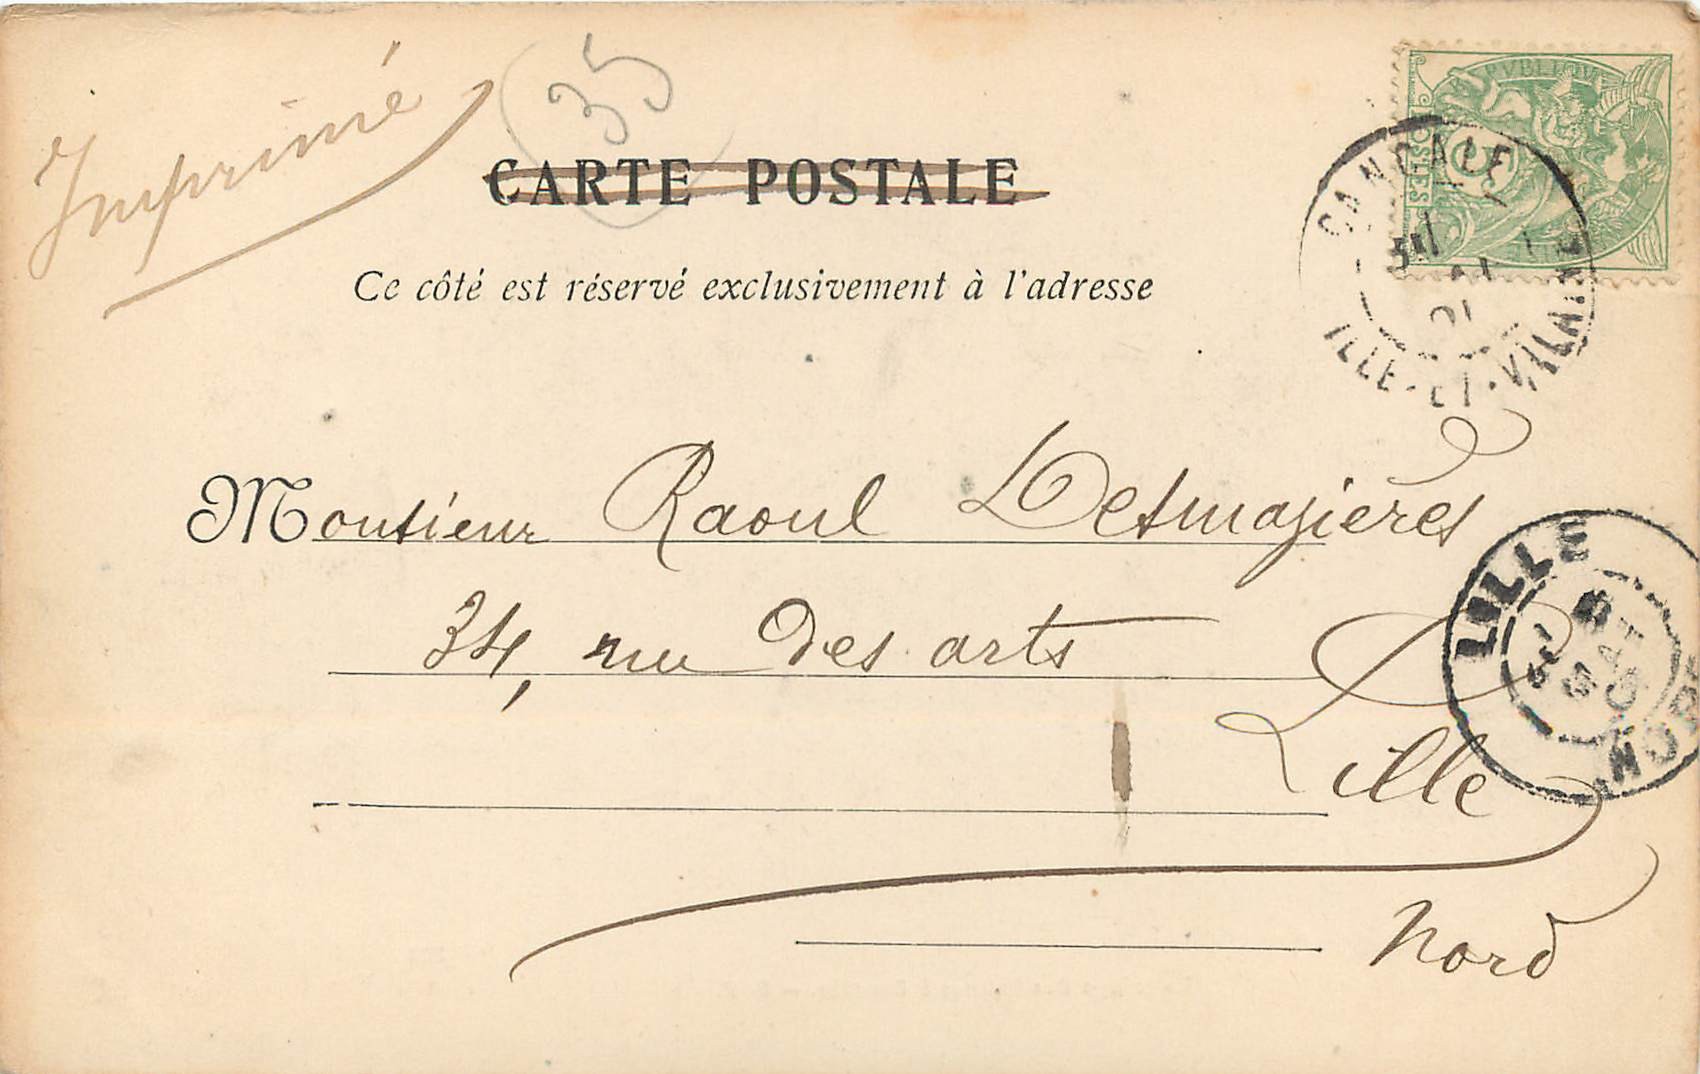 Imprimé
35
CARTE POSTALE
Ce côté est réservé exclusivement à l'adresse
CANCALE
ILLE-ET-VILAINE
01
POSTES
5
Monsieur Raoul Desmazières
34, rue des arts
Lille
Nord
LILLE
NORD